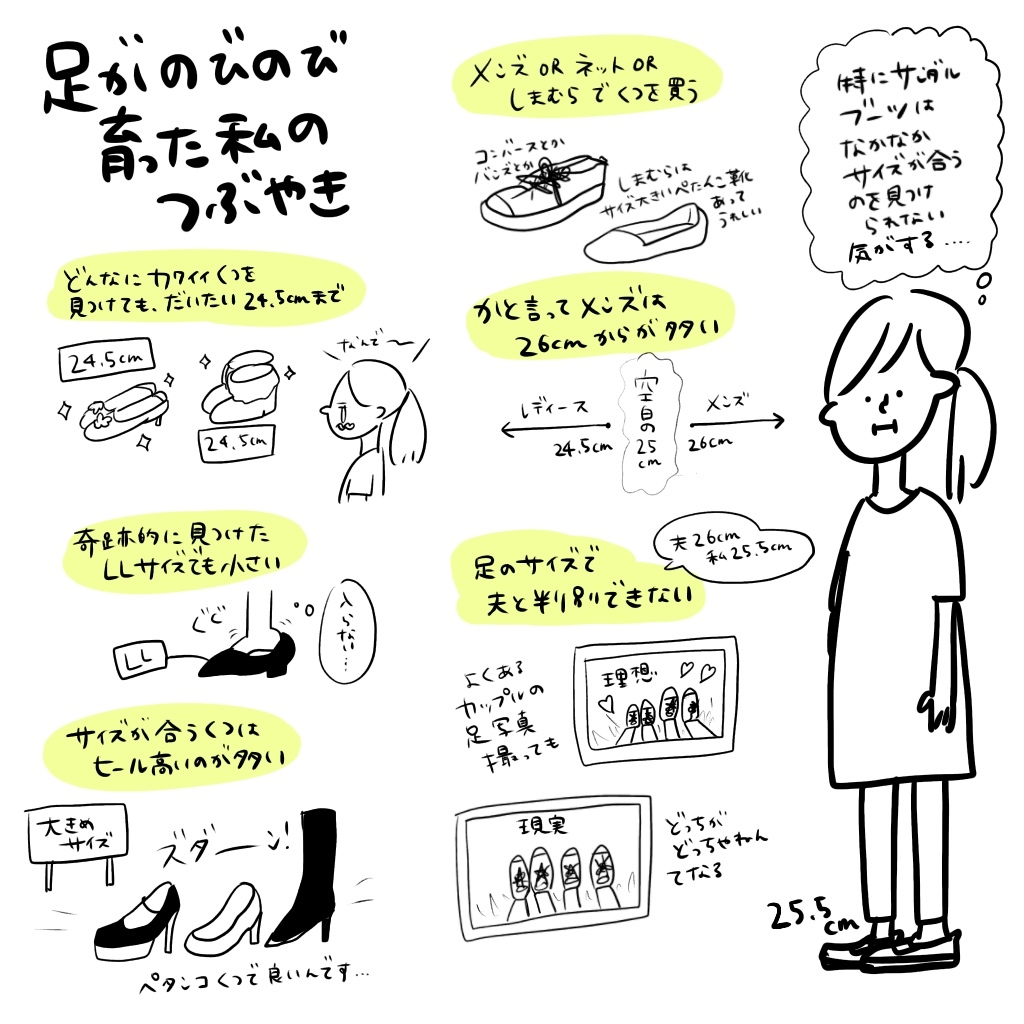 足がのびのび
育った私の
つぶやき
どんなにカワイイくつを
見つけても、だいたい24.5cmまで
24.5cm
24.5cm
なんで〜
奇跡的に見つけた
LLサイズでも小さい
ぐぐ
LL
入らない…
サイズが合うくつは
ヒール高いのが多い
大きめ
サイズ
ズダーン!
ペタンコくつで良いんです…
メンズOR ネットOR
しまむらでくつを買う
コンバースとか
バンズとか
しまむらは
サイズ大きいぺたんこ靴
あって
うれしい
かと言ってメンズは
26cmからが多い
レディース
24.5cm
空白の
25
cm
メンズ
26cm
足のサイズで
夫と判別できない
夫26cm
私25.5cm
よくある
カップルの
足写真
撮っても
理想
現実
どっちが
どっちやねん
てなる
特にサンダル
ブーツは
なかなか
サイズが合う
のを見つけ
られない
気がする....
25.5
cm